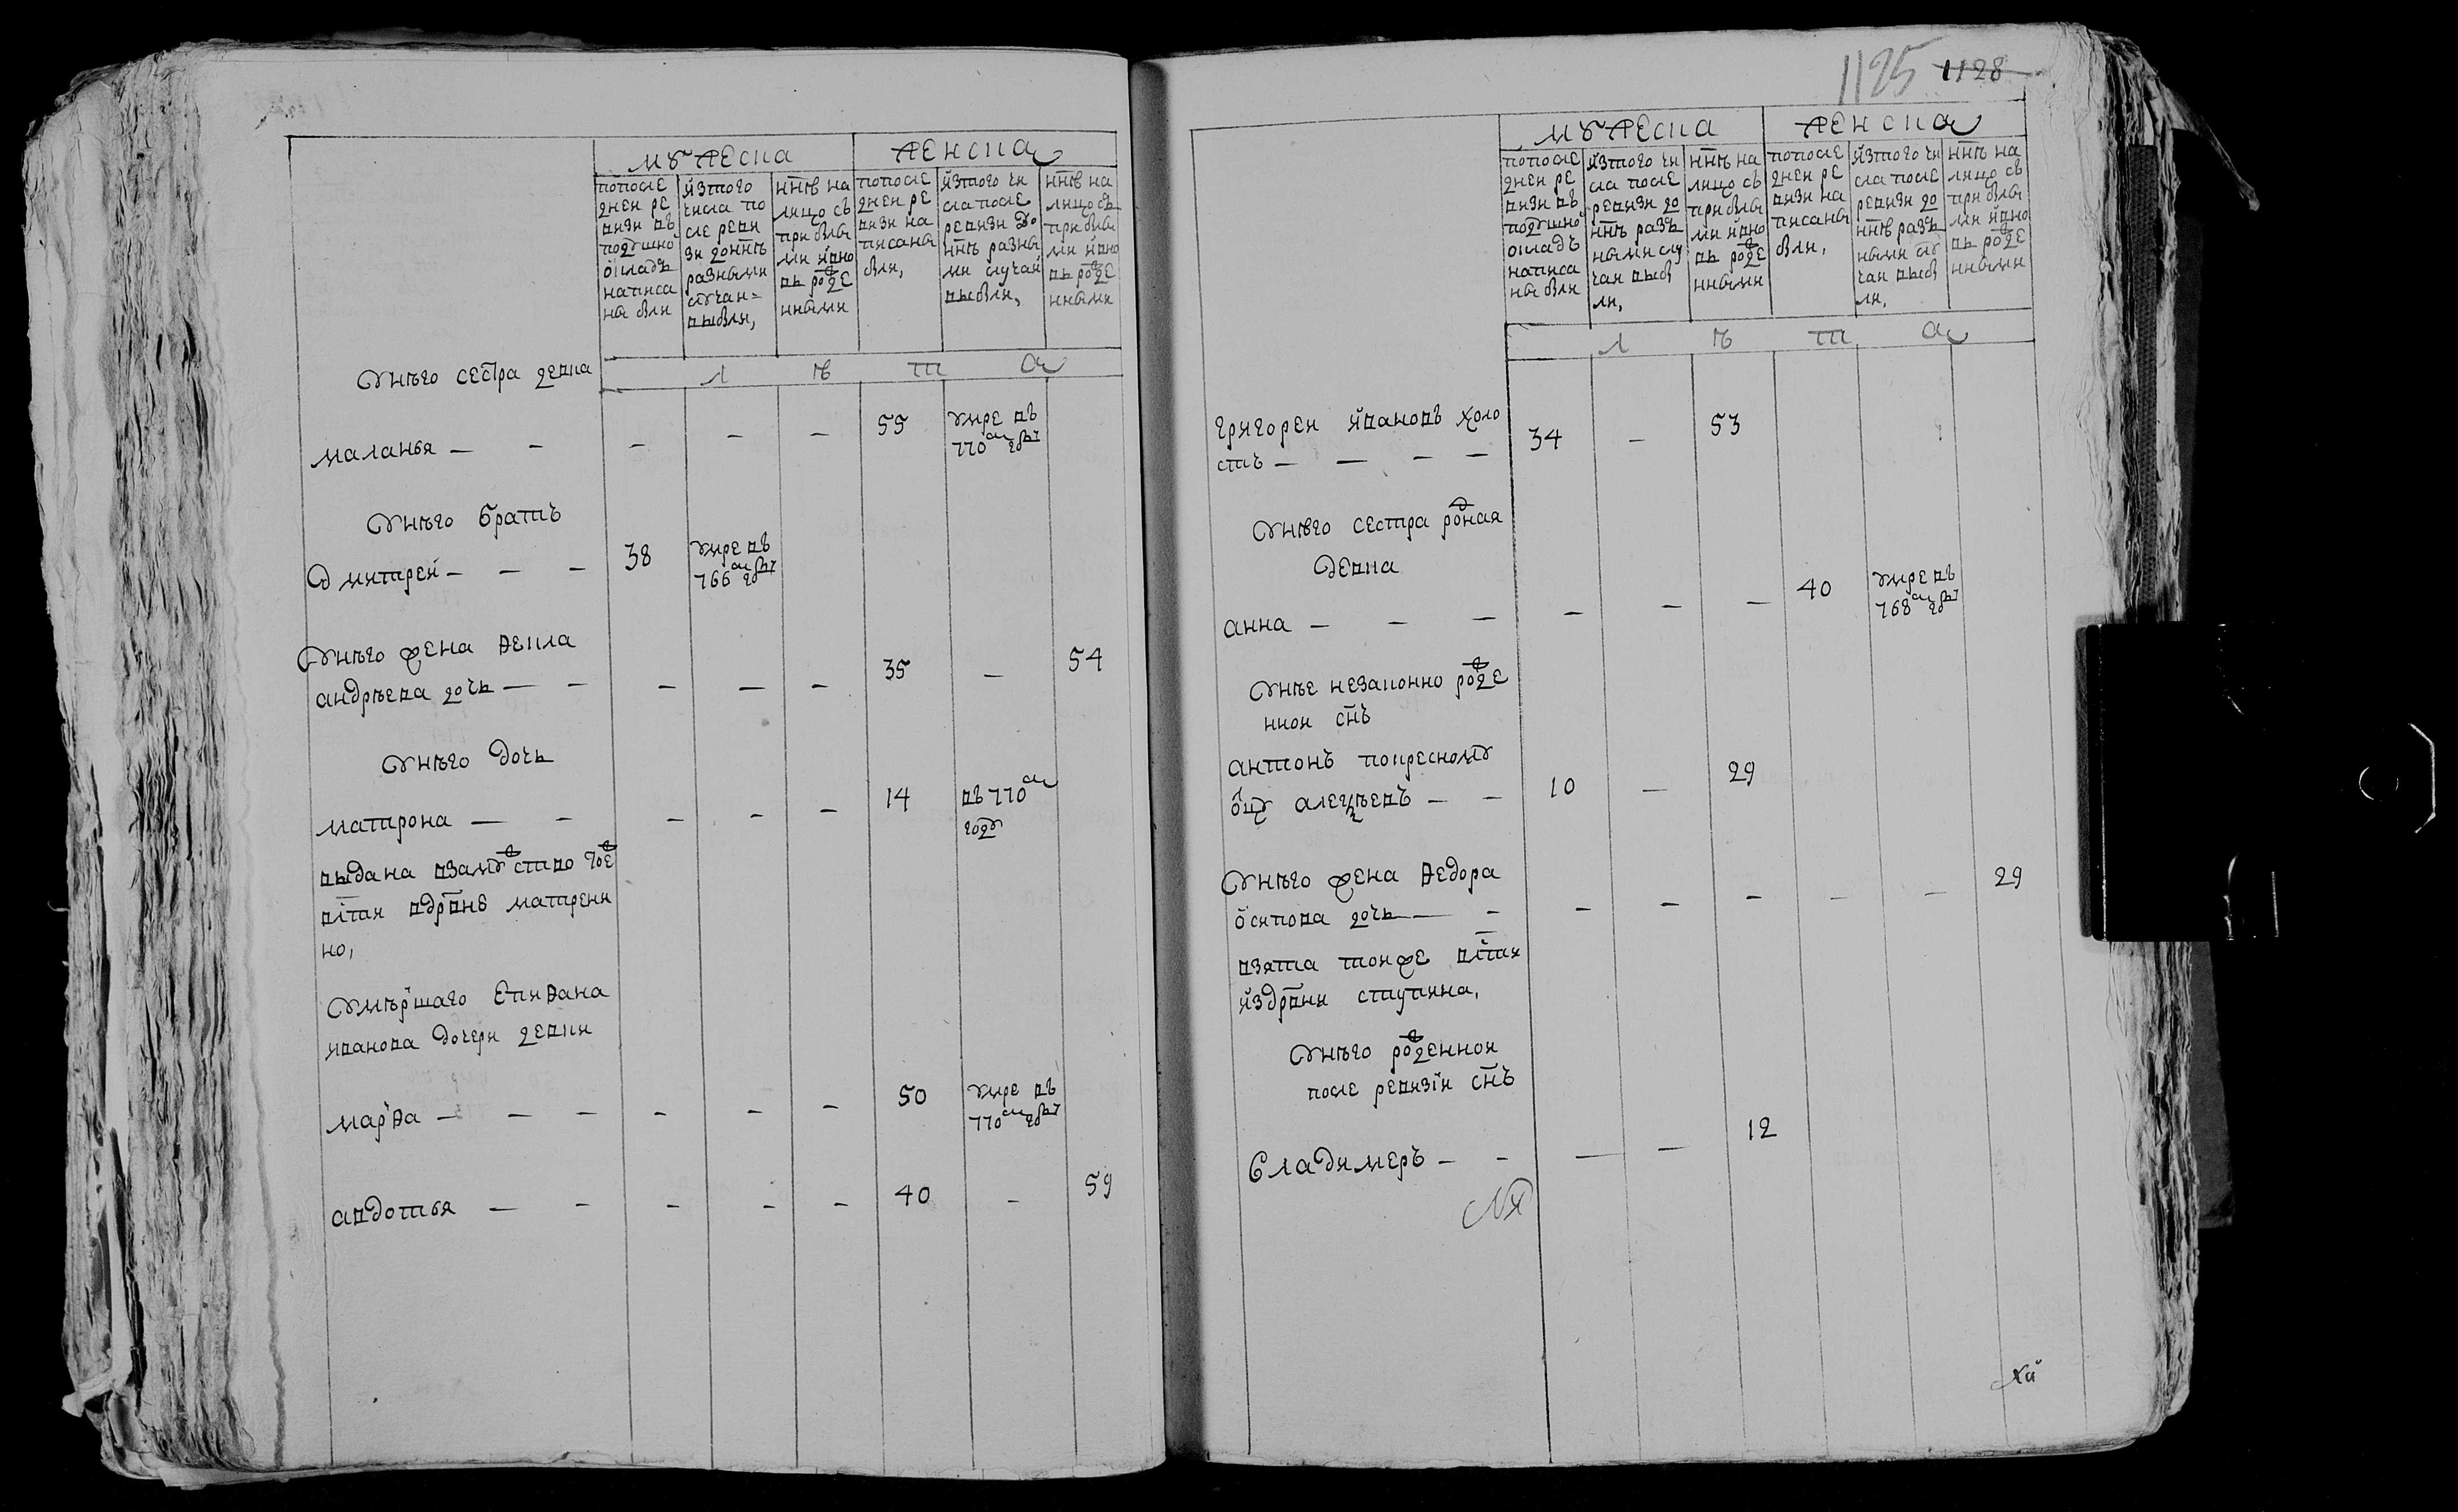 мужеска
женска
по после
дней ре
визи въ
подушно
окладъ
написа
ны были
изтого
числа по
сле реви
зи до ннѣ
разными
случаи=
выбыли,
ннѣ на
лицо съ
прибылы
ми и вно
вь рожде
нными
по после
дней ре
визи на
писаны
были,
изтого чи
сла после
ревизи до
ннѣ разны
ми случаи
выбыли,
ннѣ на
лицо съ
прибылы
ми и вно
вь рожде
нными
л ѣ т а
У него сестра девка
маланья — — — — — 55 умре въ
770м году
У него братъ
Дмитрей — — — 38 умре въ
766м году
У него жена Фекла
андрѣева дочь — — — — — 35 — 54
У него дочь
матрона — — — — — 14 въ 770м
году
выдана взамужство тоежъ
вотчи вдрвню матренн
но,
Умѣршаго Епифана
иванова дочери девки
марфа — — — — — — 50 умре въ
770м году
авдотья — — — — — 40 — 59
1125 1128
мужеска
женска
по после
дней ре
визи въ
подушно
окладъ
написа
ны были
изтого чи
сла после
ревизи до
ннѣ разъ
ными слу
чаи выбы
ли,
ннѣ на
лицо съ
прибылы
ми и вно
вь рожде
нными
по после
дней ре
визи на
писаны
были,
изтого чи
сла после
ревизи до
ннѣ разъ
ными слу
чаи выбы
ли,
ннѣ на
лицо съ
прибылы
ми и вно
вь рожде
нными
л ѣ т а
григорей ивановъ холо
стъ — — — — 34 — 53
У него сестра родная
девка
анна — — — — — — 40 умре въ
768м году
У нее незаконно рожде
нной снъ
антонъ покресному
отцу алексѣевъ — — 10 — 29
У него жена Федора
осипова дочь — — — — — — — 29
взята тоиже вотчи
издрвни ступина,
У него рожденной
после ревизiи снъ
Владимеръ — — — — 12